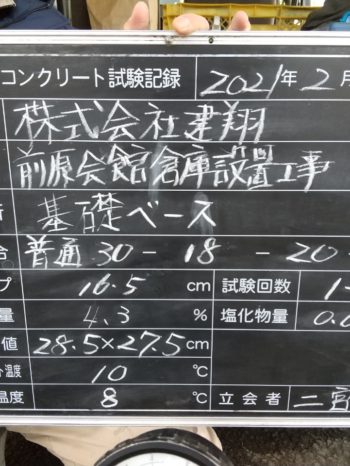 コンクリート試験記録 2021年2月
株式会社建翔
前原会館倉庫設置工事
基礎ベース
普通 30 - 18 - 20 -
プ 16.5 cm 試験回数 1-
量 4.3 % 塩化物量 0.0
値 28.5×27.5 cm
温度 10 ℃
温度 8 ℃ 立会者 二宮